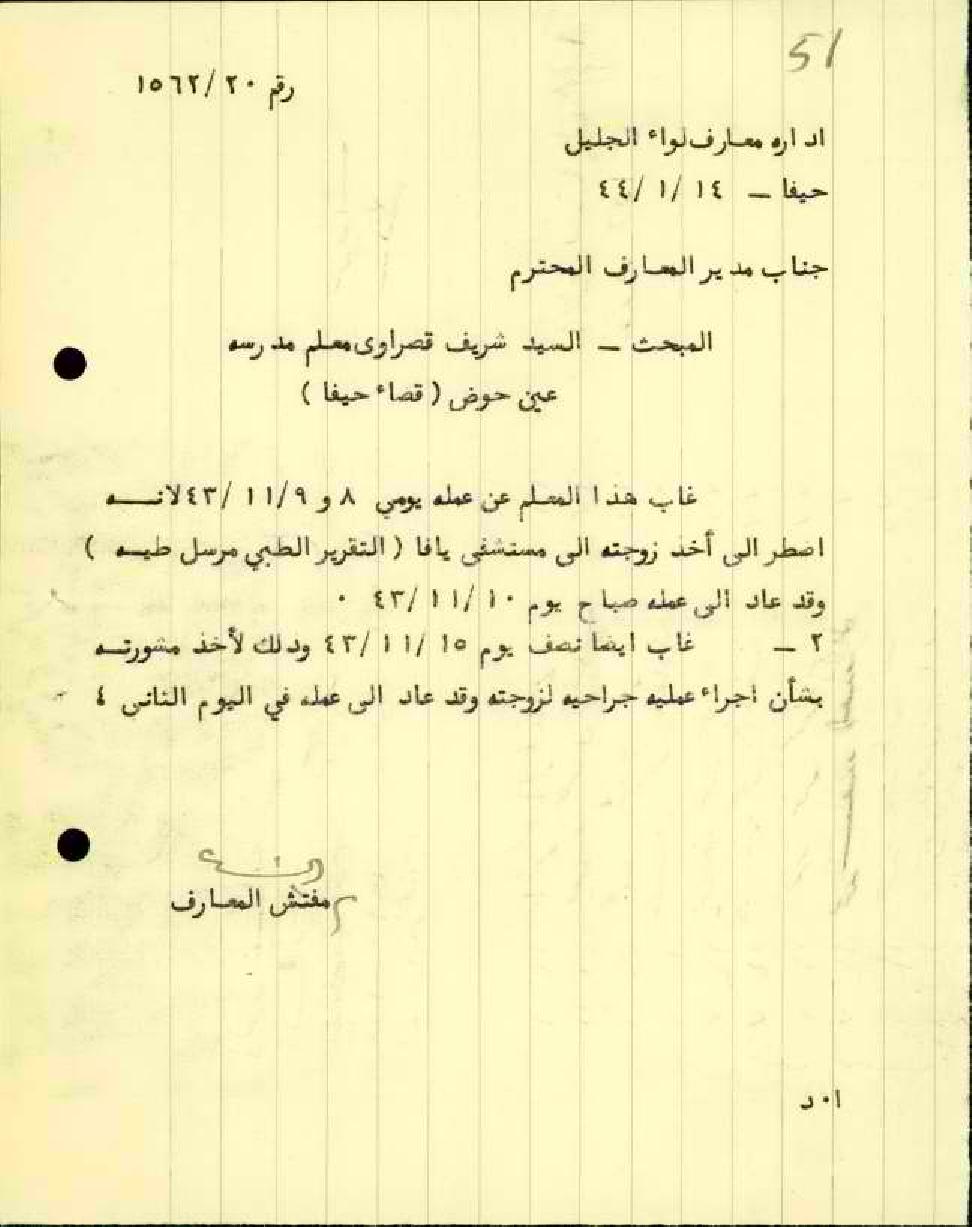 51
رقم ٢٠ /١٥٦٢
اداره معارف لواء الجليل
حيفا ــ ١٤ /١ /٤٤
جناب مدير المعارف المحترم
المبحث ــ السيد شريف قصراوى معلم مدرسه
عين حوض ( قصاء حيفا )
غاب هذا المعلم عن عمله يومي ٨ و ٩/ ١١/ ٤٣ لانــه
اضطر الى أخذ زوجته الى مستشفى يافا ( التقرير الطبي مرسل طيــه )
وقد عاد الى عمله صباح يوم ١٠ /١١ /٤٣ ٠
٢ ــ غاب ايضا نصف يوم ١٥ /١١ /٤٣ ودلك لأخذ مشورتــه
بشأن اجراء عمليه جراحيه لزوجته وقد عاد الى عمله في اليوم الثانى ٤
مفتش المعارف
ا٠ د